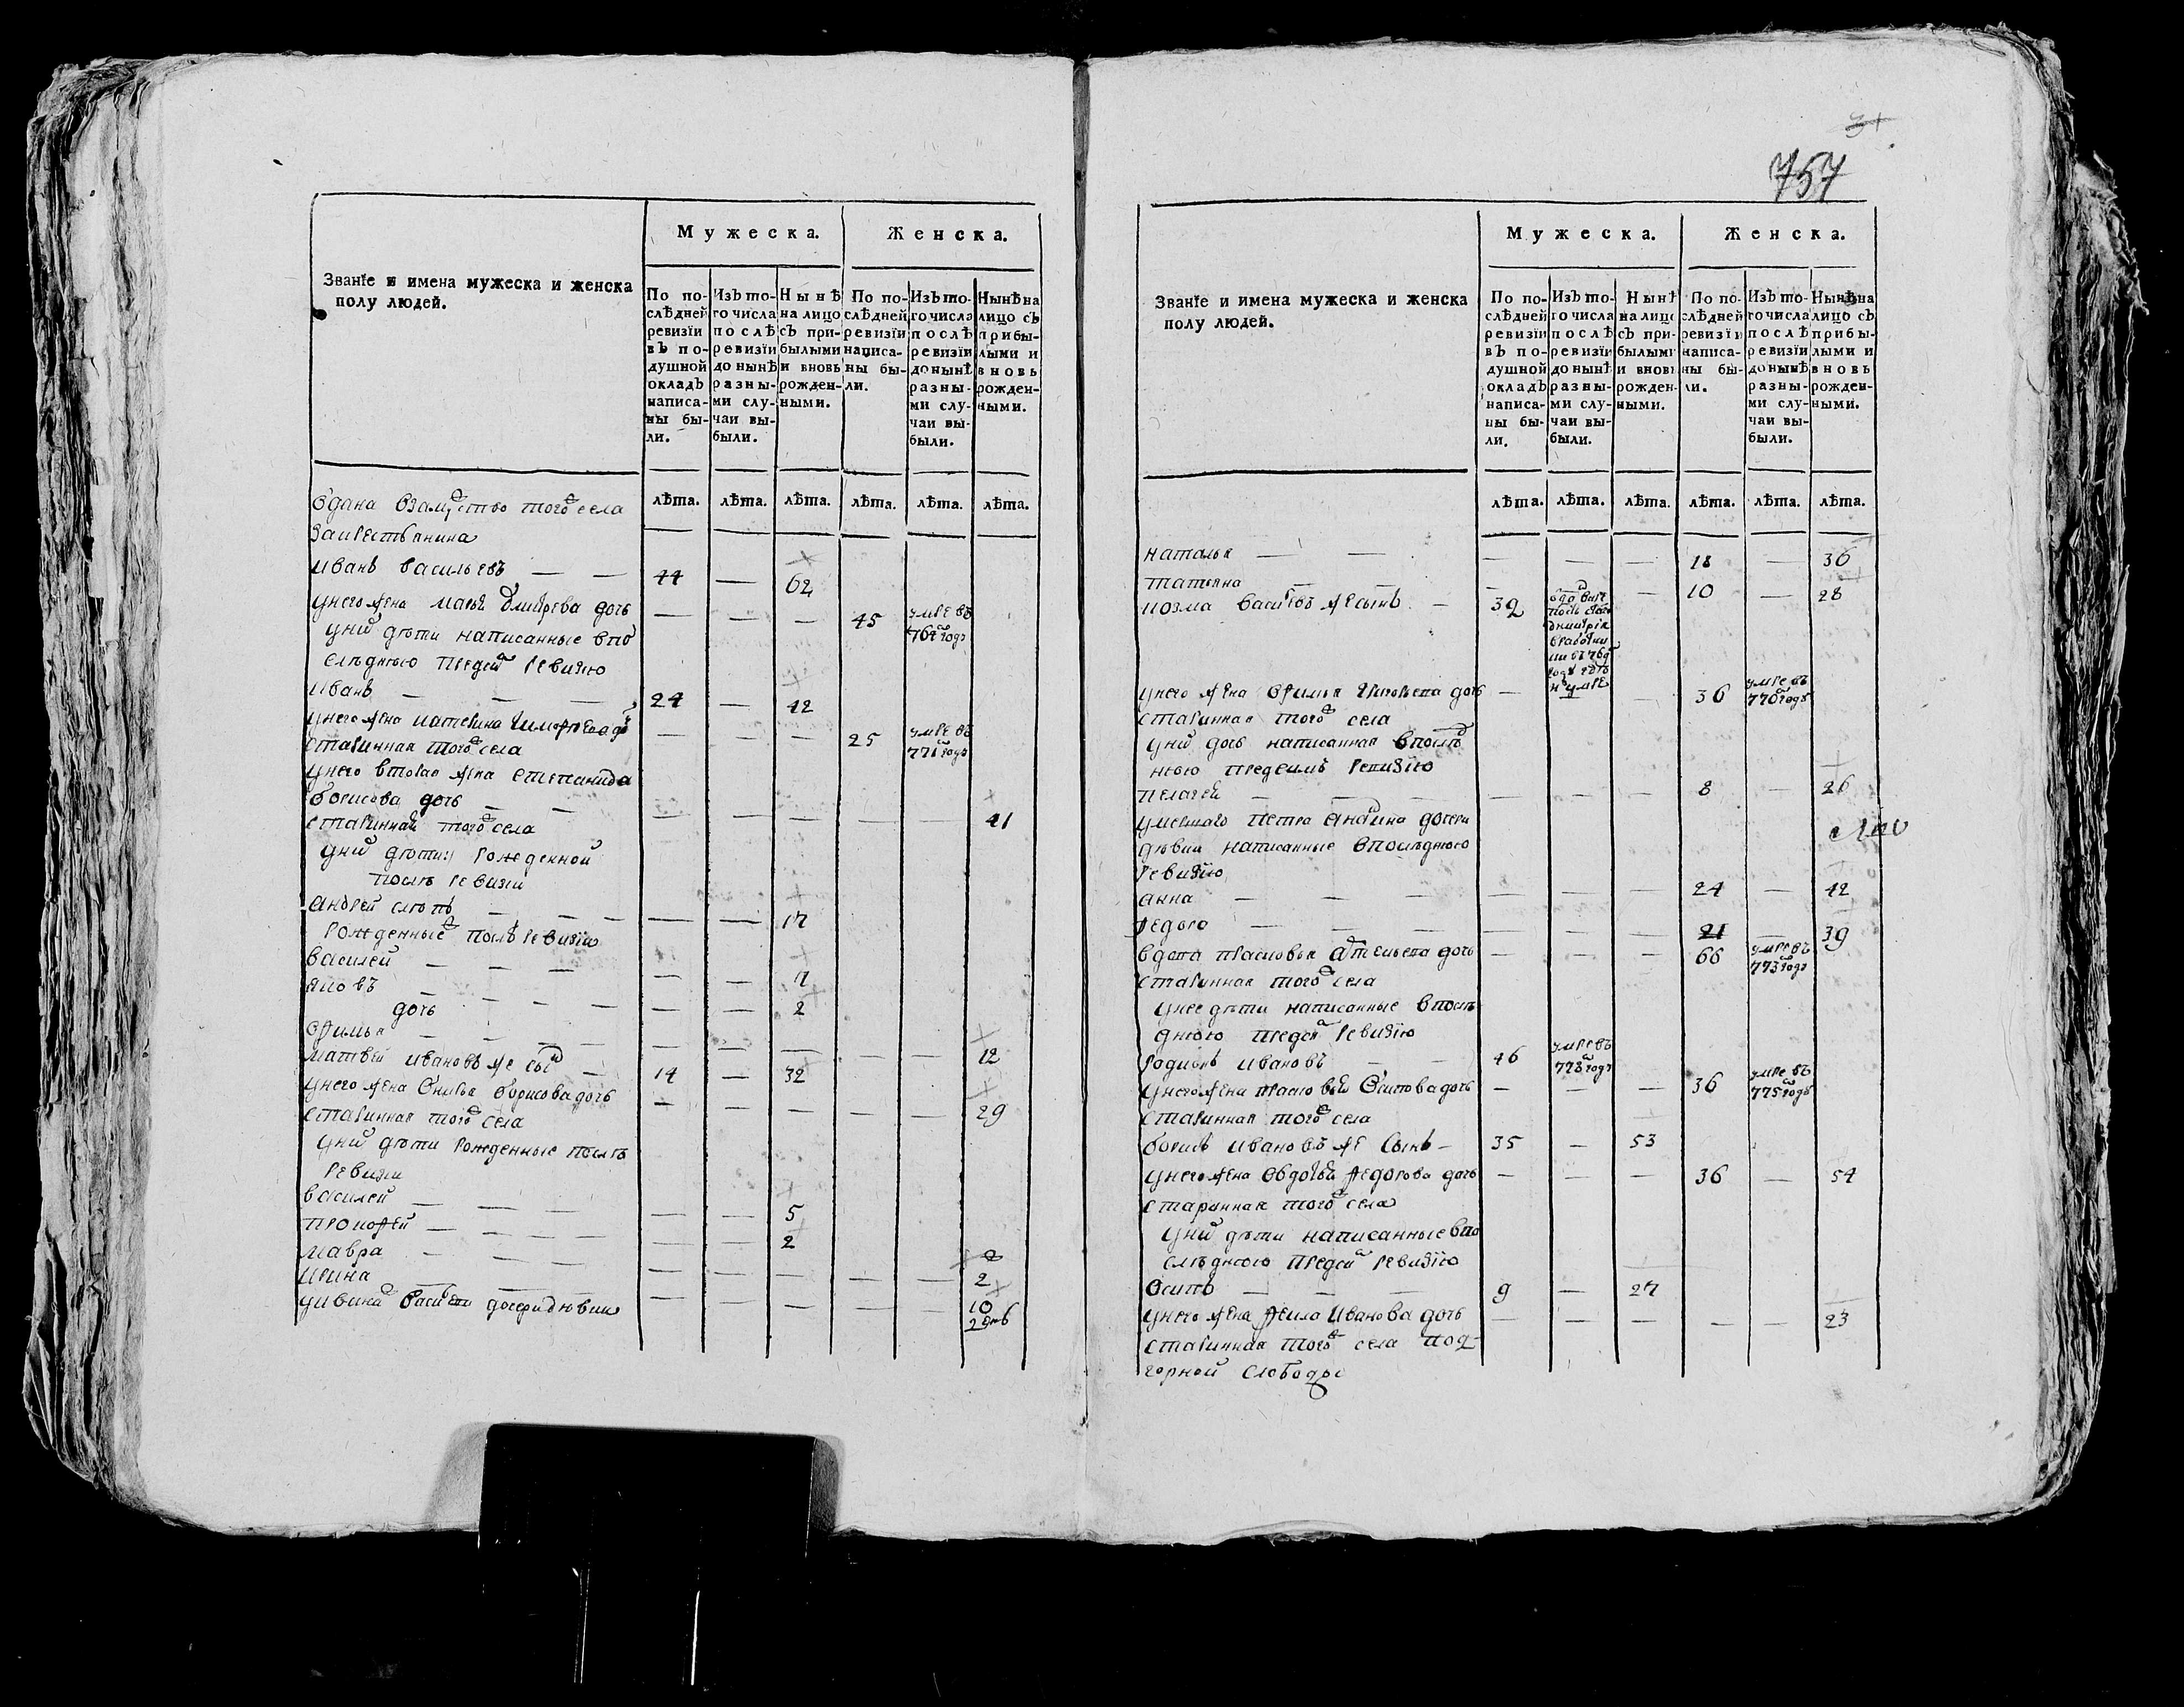 Мужеска. Женска.
Званїе и имена мужеска и женска
полу людей.
По по-
слѣдней
ревизїи
вЪ по-
душной
окладЪ
написа-
ны бы-
ли.
ИзЪ то-
го числа
послѣ
ревизїи
до нынѣ
разны-
ми слу-
чаи вы-
были.
Нынѣ
на лицо
сЪ при-
былыми
и вновь
рожден-
ными.
По по-
слѣдней
ревизїи
написа-
ны бы-
ли.
ИзЪ то-
го числа
послѣ
ревизїи
до нынѣ
разны-
ми слу-
чаи вы-
были.
Нынѣ на
лицо сЪ
прибы-
лыми и
вновь
рожден-
ными.
лѣта. лѣта. лѣта. лѣта. лѣта. лѣта.
того села
иванъ васильевъ — — 44 — 62
унего жена марья дмитрева дочь — — — 45 умре въ 762 годъ
уних дѣти написанные впо
слѣднюю пред сим ревизию
иванъ — — 24 — 42
унего жена катерина — — — 25 умре въ 771 годъ
старинная того села
унего вторая жена степанида
борисова дочь — — — — — — — 41
старинная того села
уних дѣти рожденной
послѣ ревизии
андрей — — — — — 17
рожденные послѣ ревизии
василей — — — — — 7
яковъ — — — — — 2
дочь
офимья — — — — — — — — 12
матвей ивановъ же сынъ — 14 — 32
унего жена борисова дочь — — — — — 29
старинная того села
уних дѣти рожденные послѣ
ревизии
василей — — — — — 5
прокофей — — — — — 2
мавра — — — — — — — — 2
ирина — — — — — — — — 10
дочери дѣвки
757
Мужеска. Женска.
Званїе и имена мужеска и женска
полу людей.
По по-
слѣдней
ревизїи
вЪ по-
душной
окладЪ
написа-
ны бы-
ли.
ИзЪ то-
го числа
послѣ
ревизїи
до нынѣ
разны-
ми слу-
чаи вы-
были.
Нынѣ
на лицо
сЪ при-
былыми
и вновь
рожден-
ными.
По по-
слѣдней
ревизїи
написа-
ны бы-
ли.
ИзЪ то-
го числа
послѣ
ревизїи
до нынѣ
разны-
ми слу-
чаи вы-
были.
Нынѣ на
лицо сЪ
прибы-
лыми и
вновь
рожден-
ными.
лѣта. лѣта. лѣта. лѣта. лѣта. лѣта.
наталья — — — — — 18 — 36
татьяна — — — — 10 — 28
козма васильевъ же сынъ — 39
унего жена офимья дочь — — 36 умре въ 770 годъ
старинная того села
уних дочь написанная впослѣд
нюю пред симъ ревизїю
пелагея — — — — — — 8 — 26
умершаго петра дочери
дѣвки написанные впослѣднюю
ревизїю
анна — — — — — — 24 — 42
федора — — — — — — 21 — 39
вдова прасковья дочь — — — 66 умре въ 773 годъ
старинная того села
унее дѣти написанные впослѣ
днюю пред сим ревизїю
родионъ ивановъ — — 46 умре въ 773 годъ
унего жена прасковья осипова дочь — — — 36 умре въ 775 годъ
старинная того села
борисъ ивановъ же сынъ — 35 — 53
унего жена овдотья федорова дочь — — — 36 — 54
старинная того села
уних дѣти написанные впо
слѣднюю пред сим ревизїю
осипъ — — — 9 — 27
унего жена иванова дочь — — — — — 23
старинная того села под
горной слободы